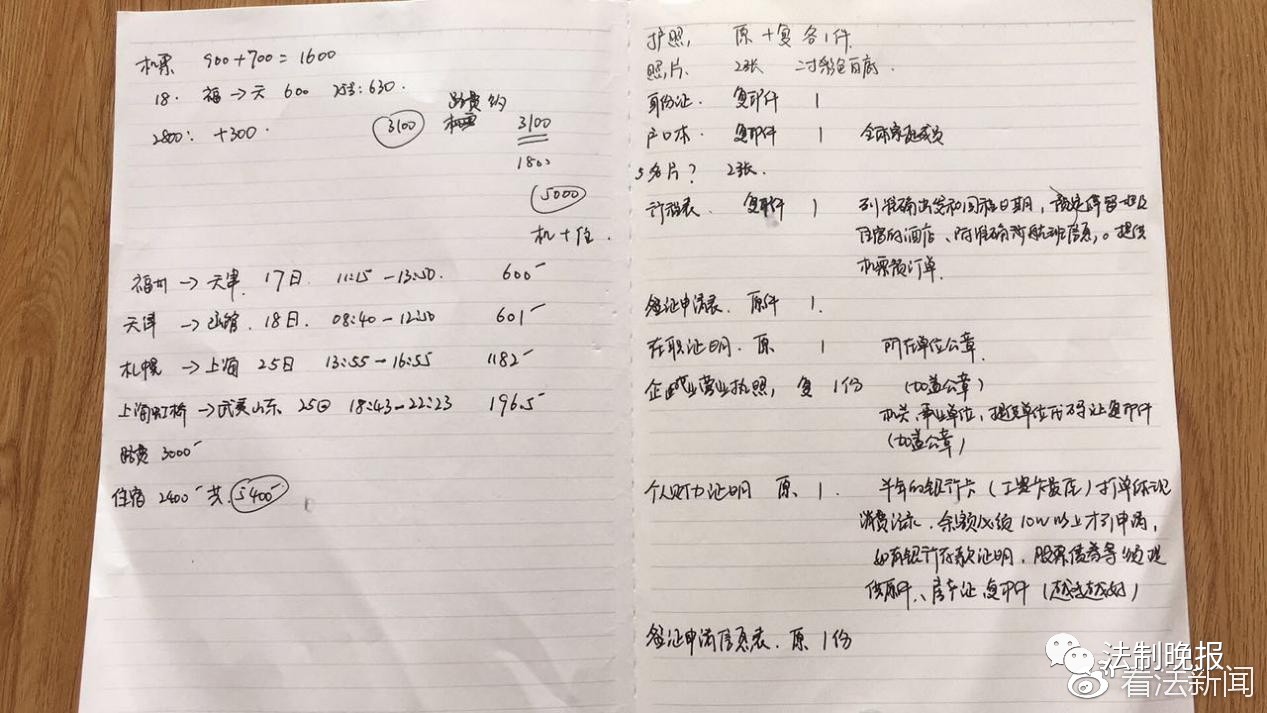 机票 900+700=1600
18. 福→天 600 253:630.
2800: +300. 3100
路费约
3100
1800
5000
机+住.
福州→天津 17日 11:15-13:50. 600
天津→函馆. 18日. 08:40-12:50 601
札幌→上海 25日 13:55-16:55 1182
上海虹桥→武夷山东 25日 18:43-22:23 196.5
路费 3000
住宿 2400 共 5400
护照, 原+复 各1件.
照片. 2张 二寸彩色白底.
身份证. 复印件 1
户口本. 复印件 1 全体家庭成员
名片? 2张.
行程表. 复印件 1 列准确出发和回程日期,
住宿的酒店、附准确行航班信息,。提供
机票预订单.
签证申请表. 原件 1.
在职证明. 原 1 所在单位公章.
企业营业执照, 复 1份 (加盖公章)
机关、事业单位, 提供单位代码证复印件
(加盖公章)
个人财力证明 原 1. 半年的银行卡(工资卡最佳)打单体现
消费流水, 余额必须10W以上才可申请,
如有银行存款证明、股票债券等须提
供原件、房产证复印件(越多越好)
签证申请信息表. 原 1份
法制晚报
看法新闻